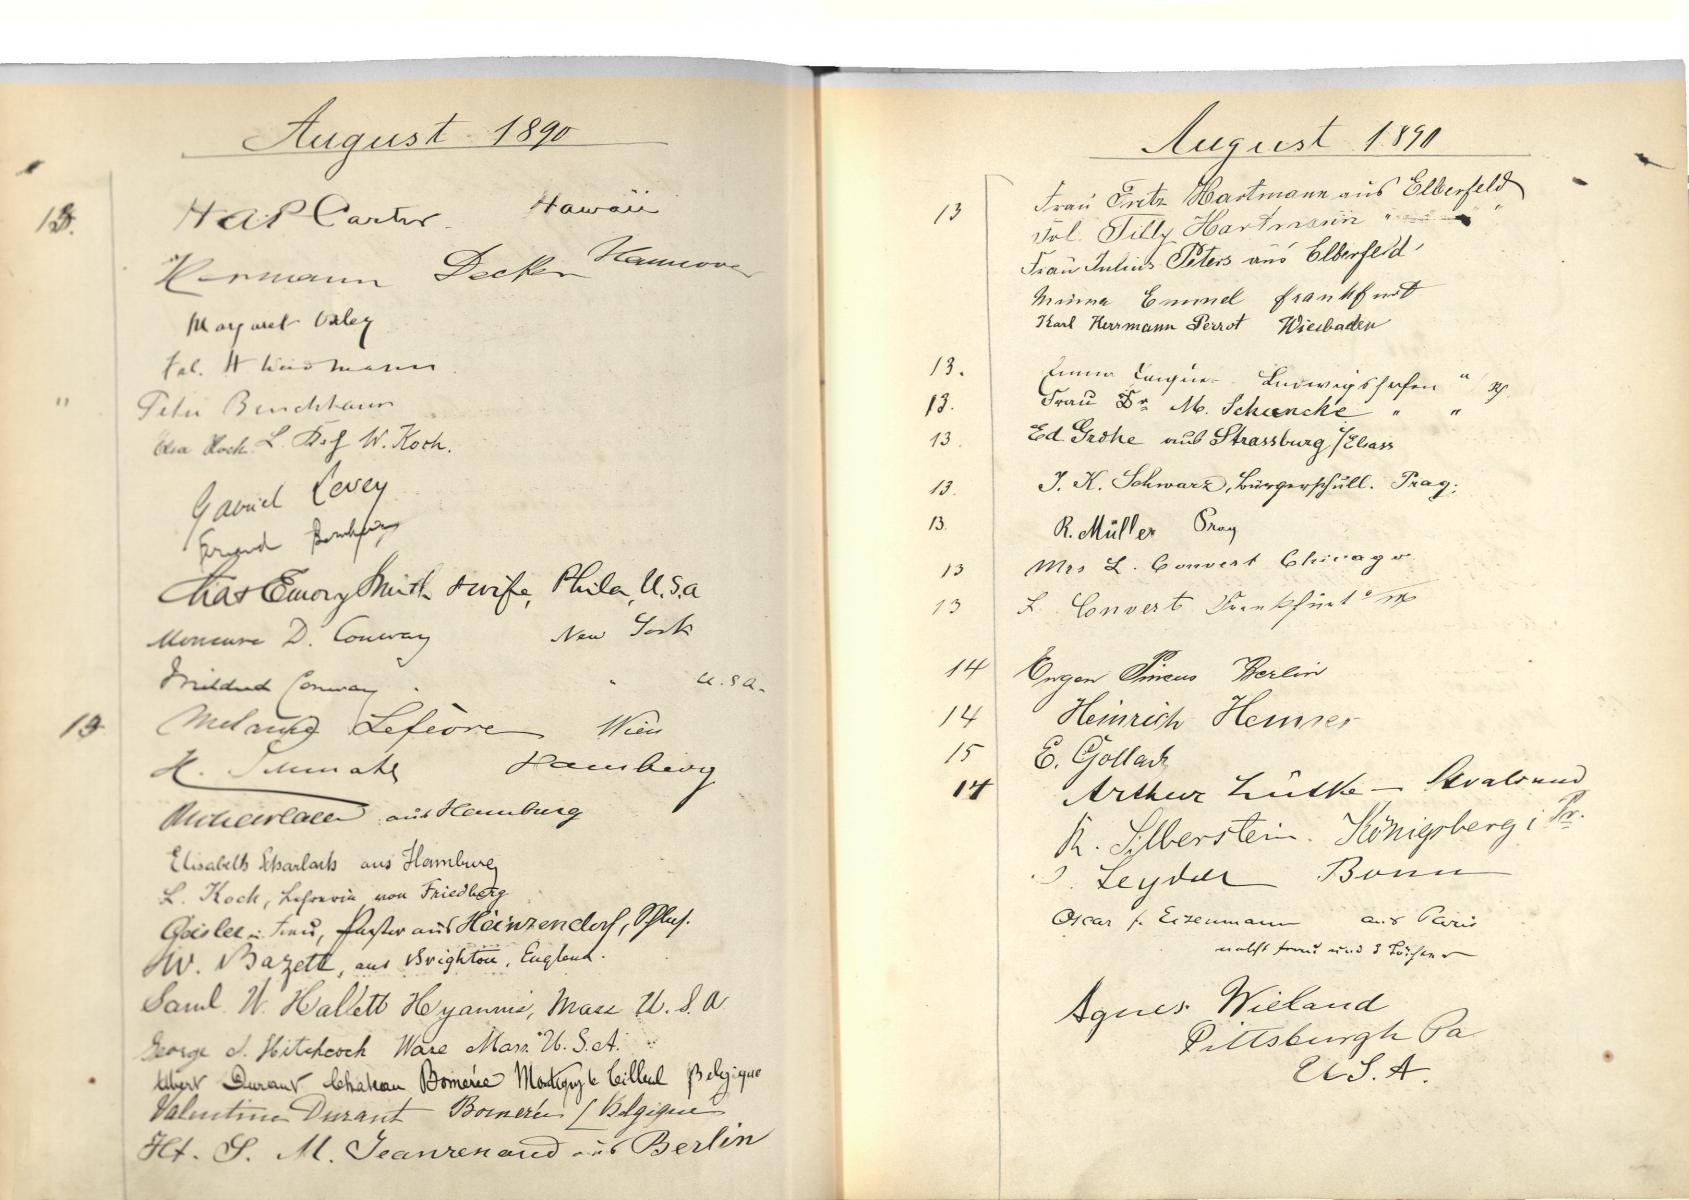 August 1890
13. H A P Carter. Hawaii
Hermann Decker Hannover
Margaret Oxley
Frl. H Weidmann
" Peter
Koch L. W. Koch.
Gabriel Levey
Chas Emory Smith & wife, Phila, U.S.A
Moncure D. Conway New York
Mildred Conway " U.S.A.
13 Melanie Lefèvre Wien
H. Hamburg
aus Hamburg
Elisabeth Scharlach aus Hamburg
L. Koch, Lehrerin von Friedberg
Geisler u. Frau, aus Heinzendorf, Schles.
W. Bazett, aus Brighton, England.
Saml W. Hallett Hyannis, Mass U. S. A
George S. Hitchcock Ware Mass. U.S.A.
Albert Durant Chateau Bomerée Montigny le Tilleul Belgique
Valentine Durant Bomerée / Belgique
S. M. Jeanrenaud aus Berlin
August 1890
13 Frau Fritz Hartmann aus Elberfeld
Frl. Tilly Hartmann " "
Frau Julius Peters aus Elberfeld
Minna Emmel Frankfurt
Karl Herrmann Perrot Wiesbaden
13. Emma Ludwigshafen a/ Rh
13. Frau Dr M. Schuncke " "
13. Ed. Grohe aus Strassburg i/Elsass
13. J. K. Schwarz, Bürgerschull. Prag.
13. R. Müller Prag
13 Mrs L. Convert Chicago
13 L. Convert Frankfurt a/M
14 Eugen Pincus Berlin
14 Heinrich Hemmer
15 E. Gollack
14 Arthur Lütke — Stralsund
R. Silberstein. Königsberg i Pr.
Leyder Bonn
Oscar J. Eizenmann aus Paris
nebst Frau und 3 Töchter
Agnes Wieland
Pittsburgh Pa
U.S.A.